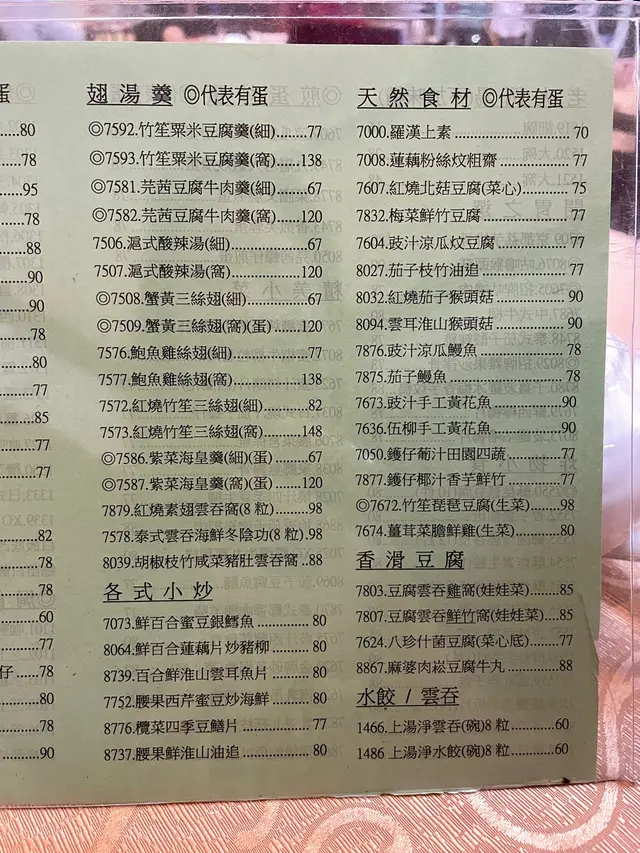 蛋
80
78
95
78
88
90
90
78
80
77
85
77
82
78
78
60
77
仔 78
80
78
90
翅湯羹 ◎代表有蛋
◎7592.竹笙粟米豆腐羹(細)....77
◎7593.竹笙粟米豆腐羹(窩)....138
◎7581.芫茜豆腐牛肉羹(細)....67
◎7582.芫茜豆腐牛肉羹(窩)....120
7506.滬式酸辣湯(細)....67
7507.滬式酸辣湯(窩)....120
◎7508.蟹黃三絲翅(細)....67
◎7509.蟹黃三絲翅(窩)(蛋)....120
7576.鮑魚雞絲翅(細)....77
7577.鮑魚雞絲翅(窩)....138
7572.紅燒竹笙三絲翅(細)....82
7573.紅燒竹笙三絲翅(窩)....148
◎7586.紫菜海皇羹(細)(蛋)....67
◎7587.紫菜海皇羹(窩)(蛋)....120
7879.紅燒素翅雲吞窩(8 粒).98
7578.泰式雲吞海鮮冬陰功(8 粒).98
8039.胡椒枝竹咸菜豬肚雲吞窩..88
各式小炒
7073.鮮百合蜜豆銀鱈魚....80
8064.鮮百合蓮藕片炒豬柳....80
8739.百合鮮淮山雲耳魚片....80
7752.腰果西芹蜜豆炒海鮮....80
8776.欖菜四季豆鱔片....77
8737.腰果鮮淮山油追....80
天然食材 ◎代表有蛋
7000.羅漢上素....70
7008.蓮藕粉絲炆粗齋....77
7607.紅燒北菇豆腐(菜心)....75
7832.梅菜鮮竹豆腐....77
7604.豉汁涼瓜炆豆腐....77
8027.茄子枝竹油追....77
8032.紅燒茄子猴頭菇....90
8094.雲耳淮山猴頭菇....90
7876.豉汁涼瓜鰻魚....78
7875.茄子鰻魚....78
7673.豉汁手工黃花魚....90
7636.伍柳手工黃花魚....90
7050.鑊仔葡汁田園四蔬....77
7877.鑊仔椰汁香芋鮮竹....77
◎7672.竹笙琵琶豆腐(生菜)....98
7674.薑茸菜膽鮮雞(生菜)....80
香滑豆腐
7803.豆腐雲吞雞窩(娃娃菜)....85
7807.豆腐雲吞鮮竹窩(娃娃菜)...85
7624.八珍什菌豆腐(菜心底)....77
8867.麻婆肉崧豆腐牛丸....88
水餃 / 雲吞
1466.上湯淨雲吞(碗)8 粒....60
1486 上湯淨水餃(碗)8 粒....60